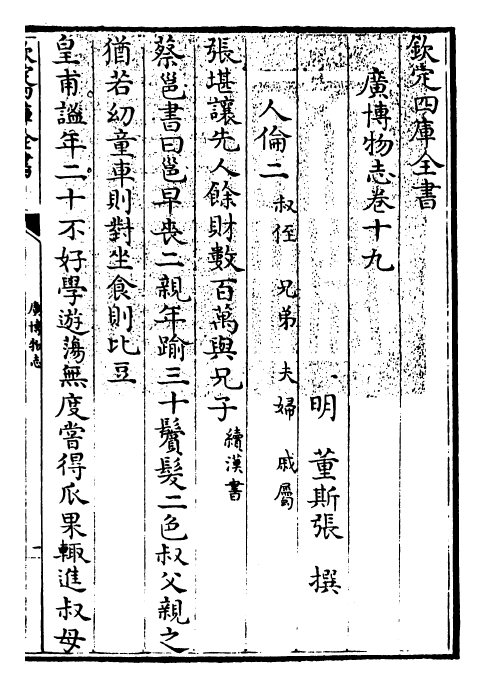 欽定四庫全書
廣博物志卷十九
明 董斯張 撰
人倫二 叔侄 兄弟 夫婦 戚屬
張堪讓先人餘財數百萬與兄子 續漢書
蔡邕書曰邕早喪二親年踰三十鬢髮二色叔父親之
猶若幼童車則對坐食則比豆
皇甫謐年二十不好學遊蕩無度嘗得瓜果輙進叔母
欽定四庫全書
廣博物志
一